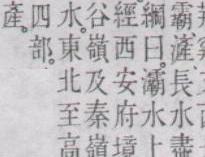 霸滻長水盡
綱曰灞水上
經西安府境
谷嶺及秦嶺
水。東北至高
四部。
產。